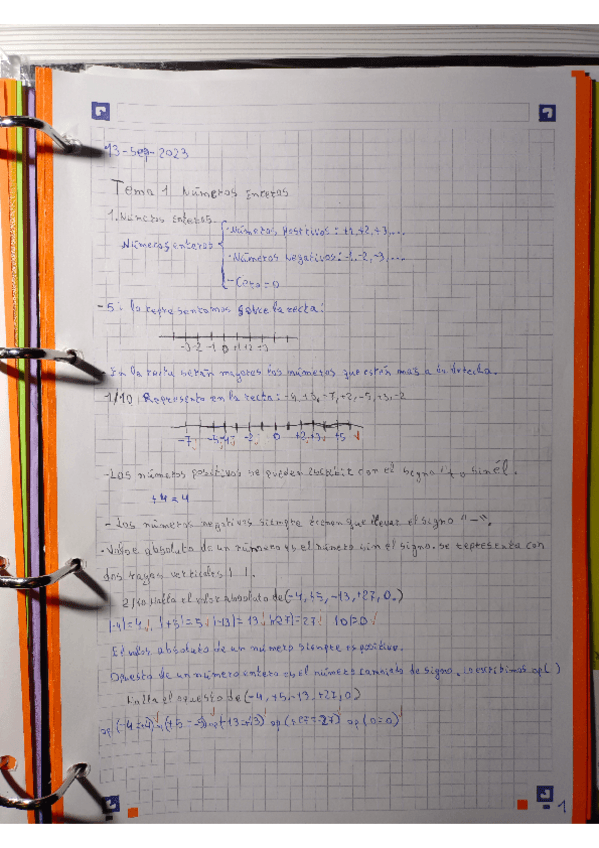 13-Sep-2023
Tema 1. Números Enteros
1. Números enteros.
Números positivos: +1,+2,+3,...
Números enteros
Números negativos: -1,-2,-3,...
-Cero=0
-5: lo representamos sobre la recta:
-3 -2 -1 0 +1 +2 +3
-En la recta serán mayores los números que están mas a la derecha.
1/10 Represento en la recta: -4,+3,-7,+2,-5,+5,-2
-7 -5 -4 -2 0 +2 +3 +5
-Los números positivos se pueden escribir con el signo + o sin él.
+4=4
-Los números negativos siempre tienen que llevar el signo "-".
-Valor absoluto de un número es el número sin el signo. se representa con
dos rayas verticales | |.
Halla el valor absoluto de (-4,+5,-13,+27,0)
|-4|=4 |+5|=5 |-13|=13 |+27|=27 |0|=0
El valor absoluto de un número siempre es positivo.
Opuesto de un número entero es el número cambiado de signo. escribimos op( )
Halla el opuesto de (-4,+5,-13,+27,0)
op(-4=+4) (+5=-5) op(-13=+13) op(+27=-27) op(0=0)
1